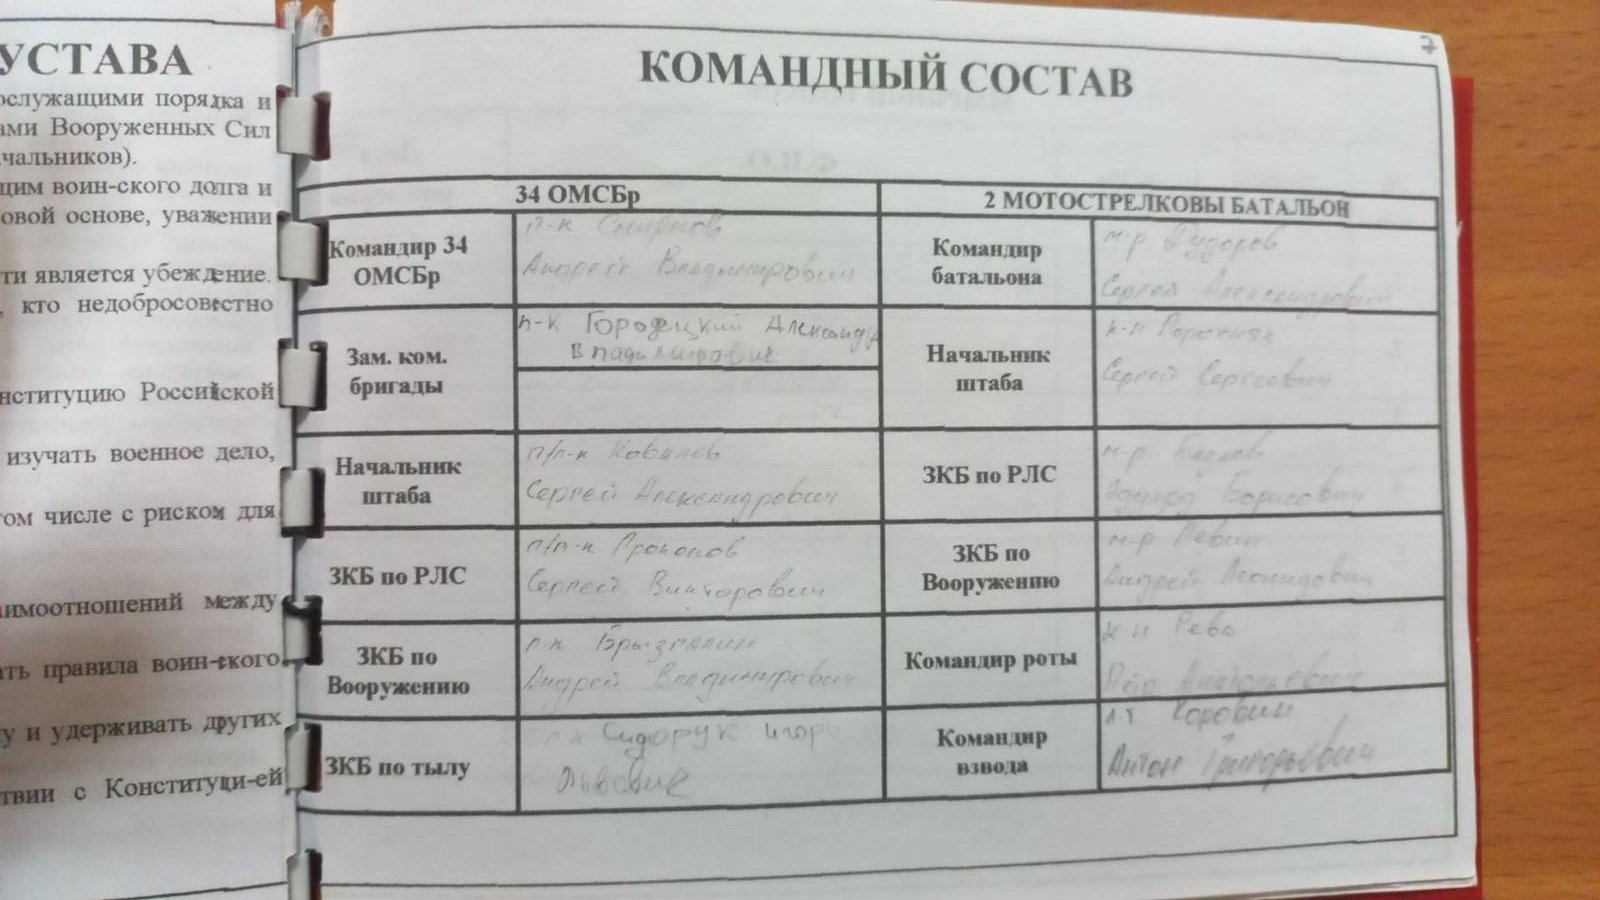 УСТАВА
ослужащими порядка и
ами Вооруженных Сил
чальников).
щим воин-ского долга и
овой основе, уважении
ти является убеждение.
, кто недобросовестно
нституцию Российской
изучать военное дело,
том числе с риском для
аимоотношений между
ать правила воин-ского
у и удерживать других
твии с Конституци-ей
7
КОМАНДНЫЙ СОСТАВ
34 ОМСБр
2 МОТОСТРЕЛКОВЫ БАТАЛЬОН
Командир 34
ОМСБр
п-к Смирнов
Андрей Владимирович
Командир
батальона
м-р Дудорев
Сергей Александрович
Зам. ком.
бригады
п-к Городецкий Александр
Владимирович
Начальник
штаба
к-н
Сергей Сергеевич
Начальник
штаба
п/п-к Ковалев
Сергей Александрович
ЗКБ по РЛС
м-р
Эдуард Борисович
ЗКБ по РЛС
п/п-к Прокопов
Сергей Викторович
ЗКБ по
Вооружению
м-р Левин
Андрей Леонидович
ЗКБ по
Вооружению
п-к Брызгалин
Андрей Владимирович
Командир роты
к-н Рева
Анатольевич
ЗКБ по тылу
п-к Сидорук Игорь
Львович
Командир
взвода
л-т Коровин
Антон Григорьевич